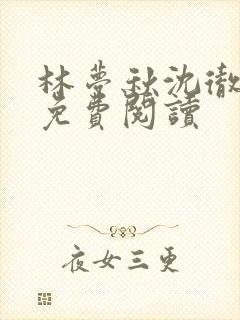 林夢秋沈徹
免費閱讀
夜女三更